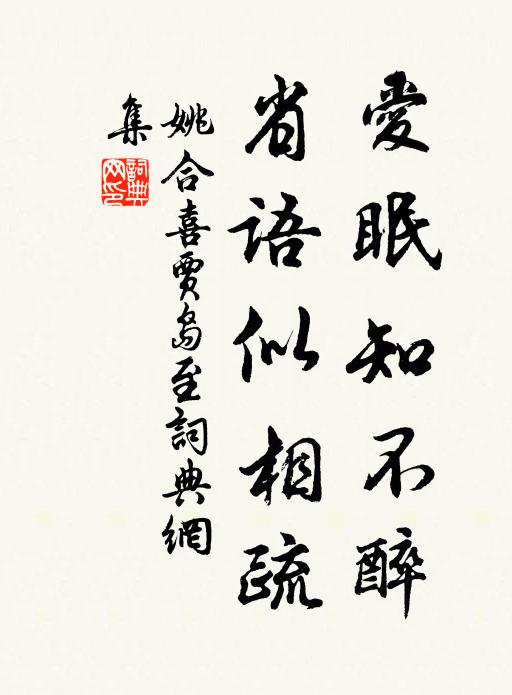 愛眠知不醉
省語似相疏
姚合喜賈島至詞典網
集
詞典網印